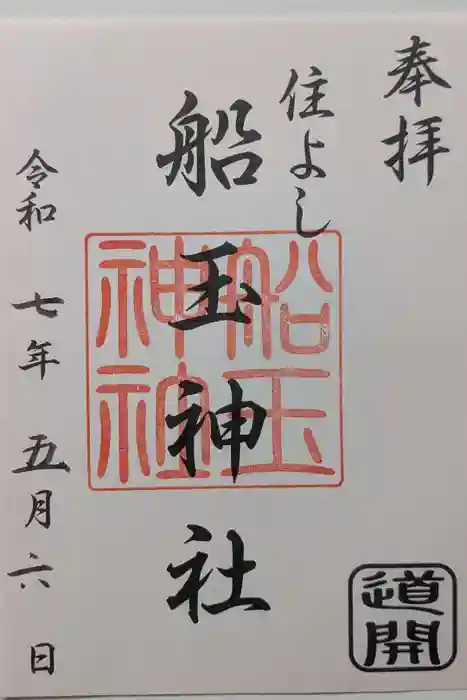 奉拝
住よし
船玉神社
船玉
神社
令和七年五月六日
道開